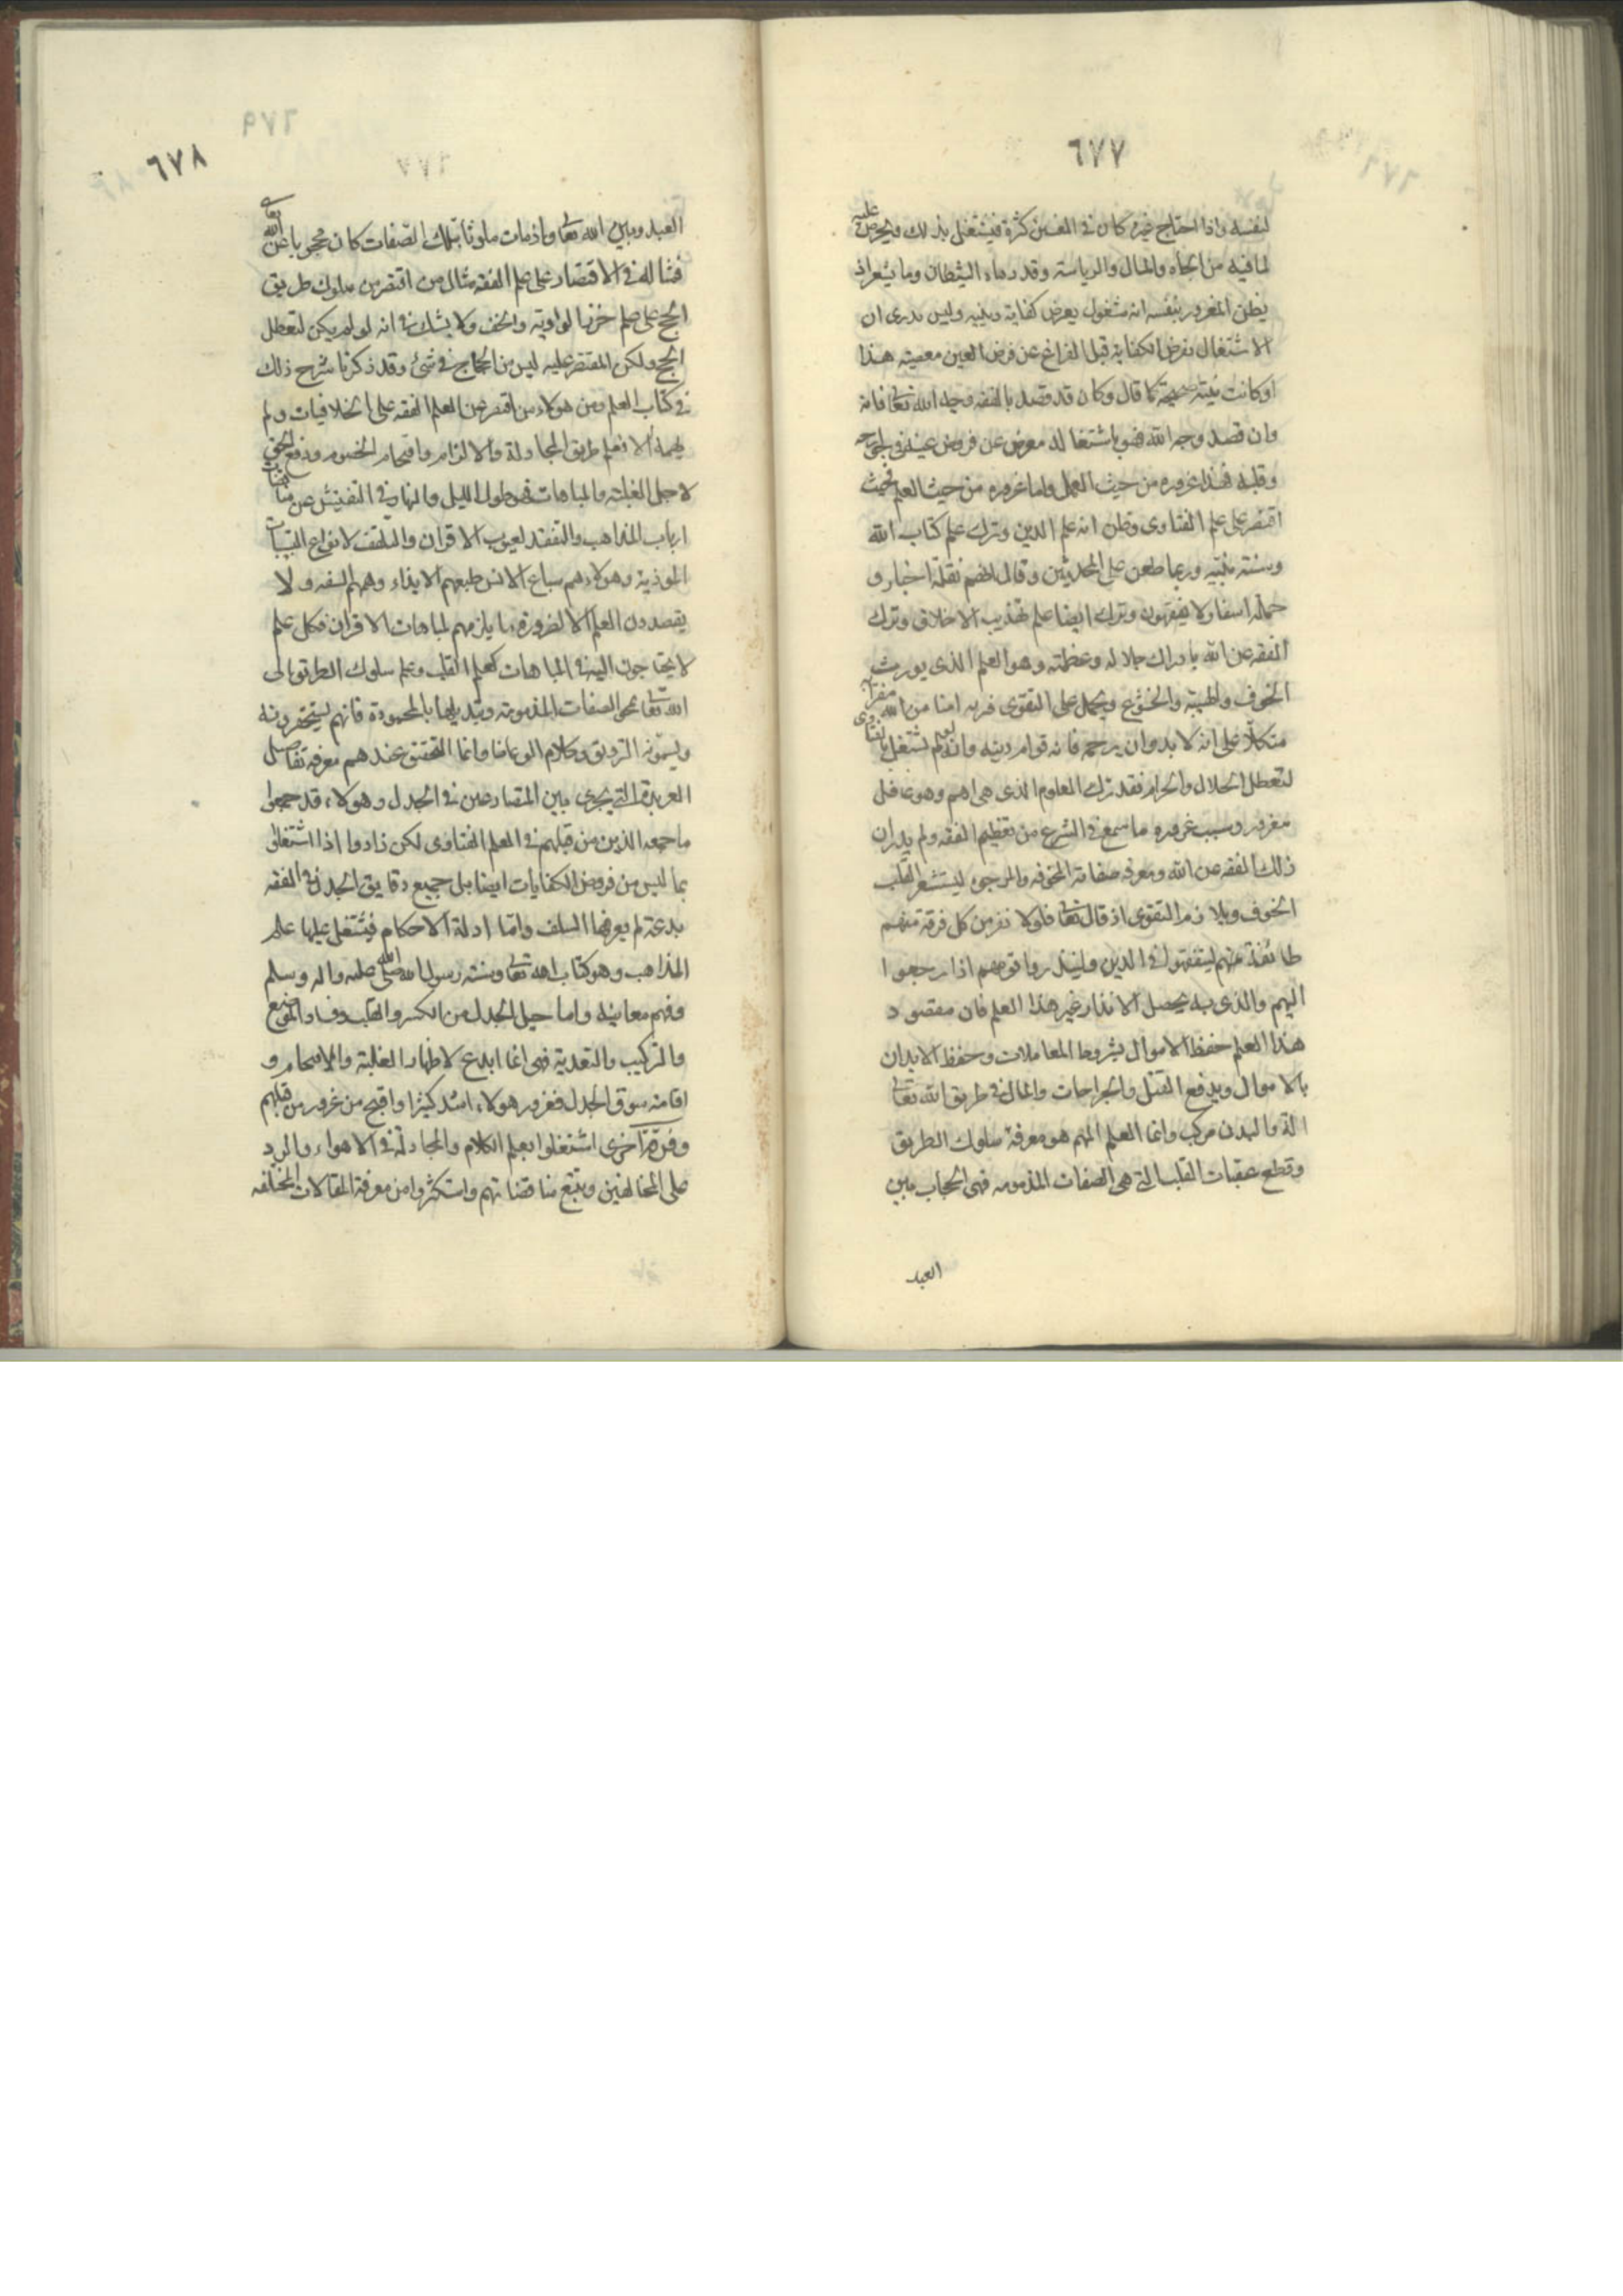 ٦٧٧
لنفسه واذا احتاج غيره كان في المفتين كثرة فيشتغل بذلك ويحرص عليه
لما فيه من الجاه والمال والرياسة وقد دهاه الشيطان وما يشعر اذ
يظن المغرور بنفسه انه مشغول بفرض كفاية دينيه وليس يدرى ان
الاشتغال بفرض الكفاية قبل الفراغ عن فرض العين معصيته هذا
لو كانت نيته صحيحة كما قال وكان قد قصد بالفقه وجه الله تعالى فانه
وان قصد وجه الله فهو باشتغاله معرض عن فرض عينه في جوارحه
وقلبه فهذا غروره من حيث العمل واما غروره من حيث العلم فحيث
اقتصر على علم الفتاوى وظن انه علم الدين وترك علم كتاب الله
وسنة نبيه وربما طعن على المحدثين وقال انهم نقلة اخبار و
حملة اسفار لا يفقهون وترك ايضا علم تهذيب الاخلاق وترك
الفقه عن الله بادراك جلاله وعظمته وهو العلم الذى يورث
الخوف والهيبة والخشوع ويحمل على التقوى فتراه امنا من الله مغترا به
متكلا على انه لا بد وان يرحمه فانه قوام دينه وانه لو لم يشتغل بالفتاوى
لتعطل الحلال والحرام فقد ترك العلوم الذى هى اهم وهو غافل
مغرور وسبب غروره ما سمع في الشرع من تعظيم الفقه ولم يدر ان
ذلك الفقه عن الله ومعرفه صفاته المخوفه والمرجوه ليستشعر القلب
الخوف ويلازم التقوى اذ قال تعالى فلولا نفر من كل فرقة منهم
طائفة منهم ليتفقهوا في الدين ولينذروا قومهم اذا رجعوا
اليهم والذى به يحصل الانذار غير هذا العلم فان مقصود
هذا العلم حفظ الاموال بشروط المعاملات وحفظ الابدان
بالاموال وبدفع القتل والجراحات والمال في طريق الله تعالى
الة والبدن مركب وانما العلم المهم هو معرفة سلوك الطريق
وقطع عقبات القلب التي هى الصفات المذمومه فهى الحجاب بين
العبد
٦٧٨
العبد وبين الله تعالى واذ مات ملوثا بتلك الصفات كان محجوبا عن الله تعالى
فمثاله في الاقتصار على علم الفقه مثال من اقتصر من سلوك طريق
الحج على علم خرز الراوية والخف ولا يشك في انه لو لم يكن لتعطل
الحج ولكن المقتصر عليه ليس من الحاج في شئ وقد ذكرنا شرح ذلك
في كتاب العلم ومن هولاء من اقتصر من العلم الفقه على الخلافيات ولم
يهمه الا تعلم طريق المجادلة والالزام وافحام الخصوم ودفع الحق
لاجل الغلبة والمباهات فهو طول الليل والنهار في التفتيش عن مناقضات
ارباب المذاهب والتفقد لعيوب الاقران والتلقف لانواع
الموذية وهولاء هم سباع الانس طبعهم الايذاء وهمهم السفه ولا
يقصدون العلم الا لضرورة ما يلزمهم لمباهات الاقران فكل علم
لا يحتاجون اليه في المباهات كعلم القلب وعلم سلوك الطريق الى
الله تعالى بمحو الصفات المذمومة وتبديلها بالمحمودة فانهم يستحقرونه
ويسمونه التزويق وكلام الوعاظ وانما التحقيق عندهم معرفة تفاصيل
العربدة التي يجرى بين المتصارعين في الجدل وهولاء قد جمعوا
ما جمعه الذين من قبلهم في العلم الفتاوى لكن زادوا اذا اشتغلوا
بما ليس من فروض الكفايات ايضا بل جميع دقايق الجدل في الفقه
بدعة لم يعرفها السلف واما ادلة الاحكام فيشتمل عليها علم
المذاهب وهو كتاب الله تعالى وسنة رسول الله صلى الله عليه واله وسلم
وفهم معانيه واما حيل الجدل من الكسر والقلب وفساد الوضع
والتركيب والتعدية فهى انما ابدع لاظهار الغلبة والافحام و
اقامة سوق الجدل فغرور هولاء اشد كثيرا واقبح من غرور من قبلهم
وفرقة اخرى اشتغلوا بعلم الكلام والمجادلة في الاهواء والرد
على المخالفين وتتبع مناقضاتهم واستكثروا من معرفة المقالات المختلفه